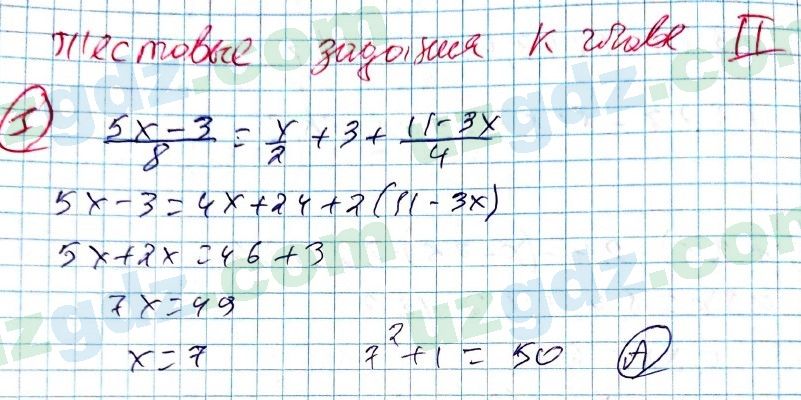 Тестовые задания к главе II
I (5x-3)/8 = x/2 + 3 + (11-3x)/4
5x-3=4x+24+2(11-3x)
5x+2x=46+3
7x=49
x=7 7²+1=50 A
uzgdz.com
uzgdz.com
uzgdz.com
uzgdz.com